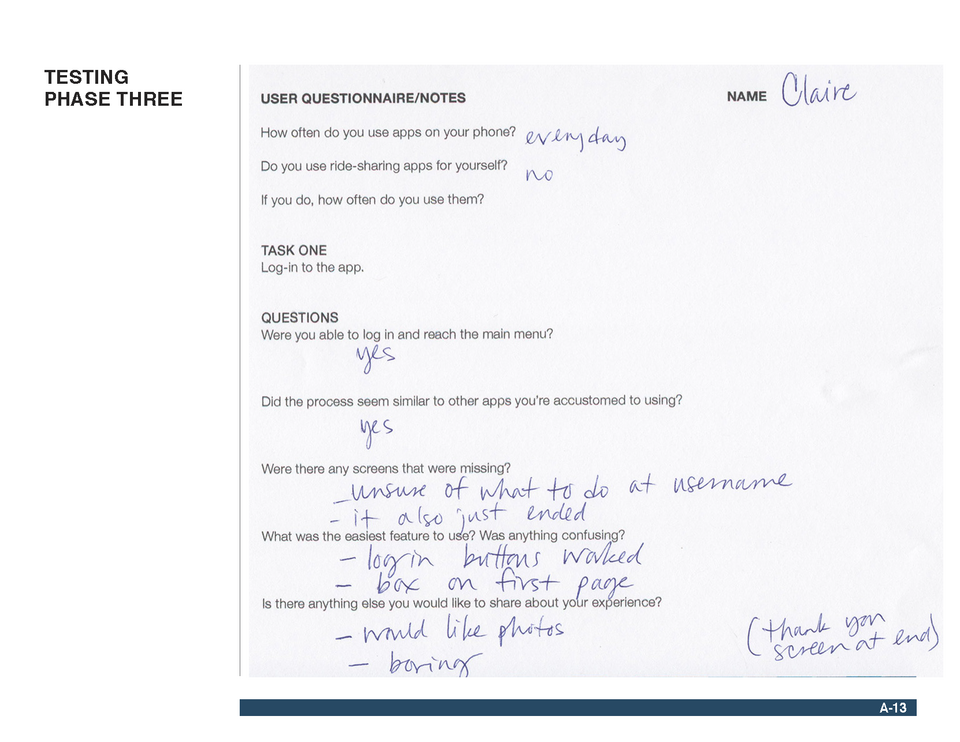 TESTING
PHASE THREE
USER QUESTIONNAIRE/NOTES
NAME Claire
How often do you use apps on your phone? everyday
Do you use ride-sharing apps for yourself? no
If you do, how often do you use them?
TASK ONE
Log-in to the app.
QUESTIONS
Were you able to log in and reach the main menu?
yes
Did the process seem similar to other apps you're accustomed to using?
yes
Were there any screens that were missing?
- unsure of what to do at username
- it also just ended
What was the easiest feature to use? Was anything confusing?
- login buttons worked
- box on first page
Is there anything else you would like to share about your experience?
- would like photos
- boring
(thank you
screen at end)
A-13